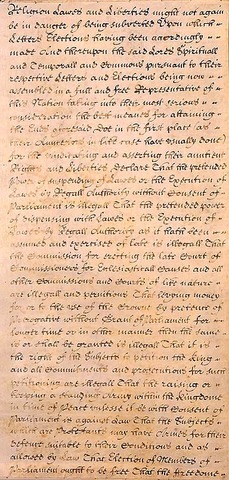 Religion Lawes and Liberties might not againe
be in danger of being subverted Upon which
Letters Elections having been accordingly
made And thereupon the said Lords Spirituall
and Temporall and Commons pursuant to their
respective Letters and Elections being now
assembled in a full and free Representative of
this Nation taking into their most serious
consideration the best meanes for attaining
the Ends aforesaid Doe in the first place as
their Auncestors in like case have usually done
for the vindicating and asserting their auntient
Rights and Liberties, Declare That the pretended
Power of suspending of Lawes or the Execution of
Lawes by Regall Authority without Consent of
Parliament is illegall That the pretended power
of dispensing with Lawes or the Execution of
Lawes by Regall Authority as it hath been
assumed and exercised of late is illegall That
the Commission for erecting the late Court of
Commissioners for Ecclesiastical Causes and all
other Commissions and Courts of like nature
are illegall and pernitious That levying money
for or to the use of the Crowne by pretence of
Prerogative without Grant of Parliament for
longer time or in other manner then the same
is or shall be granted is illegall That it is
the right of the Subjects to petition the King
and all Committments and prosecutions for such
petitioning are illegall That the raising or
keeping a standing Army within the Kingdome
in time of Peace unlesse it be with Consent of
Parliament is against Law That the Subjects
which are Protestants may have Armes for their
defence suitable to their Conditions and as
allowed by Law That Election of Members of
Parliament ought to be free That the freedome